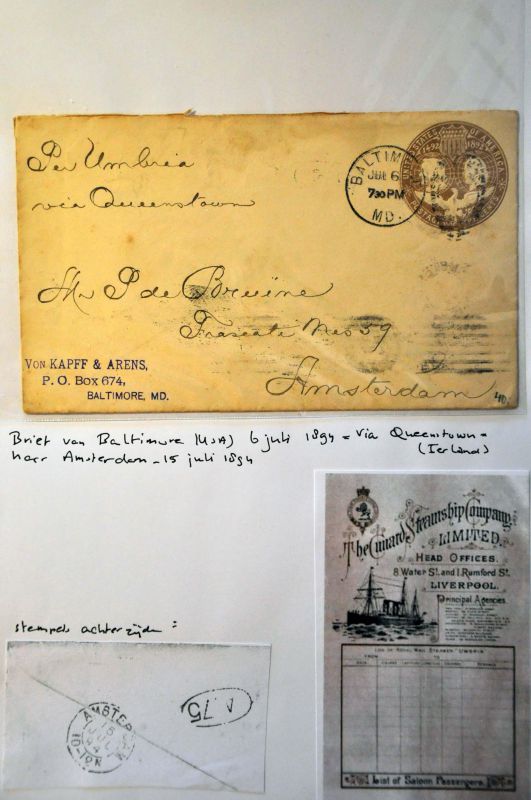 Per Umbria
via Queenstown
BALTIMO
JUL 6
7 30 PM
MD.
UNITED STATES OF AMERICA
1492 1892
Mr P de Bruine
Amsterdam
VON KAPFF & ARENS,
P. O. BOX 674,
BALTIMORE, MD.
Brief van Baltimore (USA) 6 juli 1894 = via Queenstown =
(Ierland)
naar Amsterdam - 15 juli 1894
The Cunard Steamship Company
LIMITED.
HEAD OFFICES.
8 Water St. and 1, Rumford St.
LIVERPOOL.
Principal Agencies
LOG OF ROYAL MAIL STEAMER "UMBRIA"
FROM TO
List of Saloon Passengers.
stempels achterzijde =
AMSTERDAM
15
JUL
94
10-12N
A 75